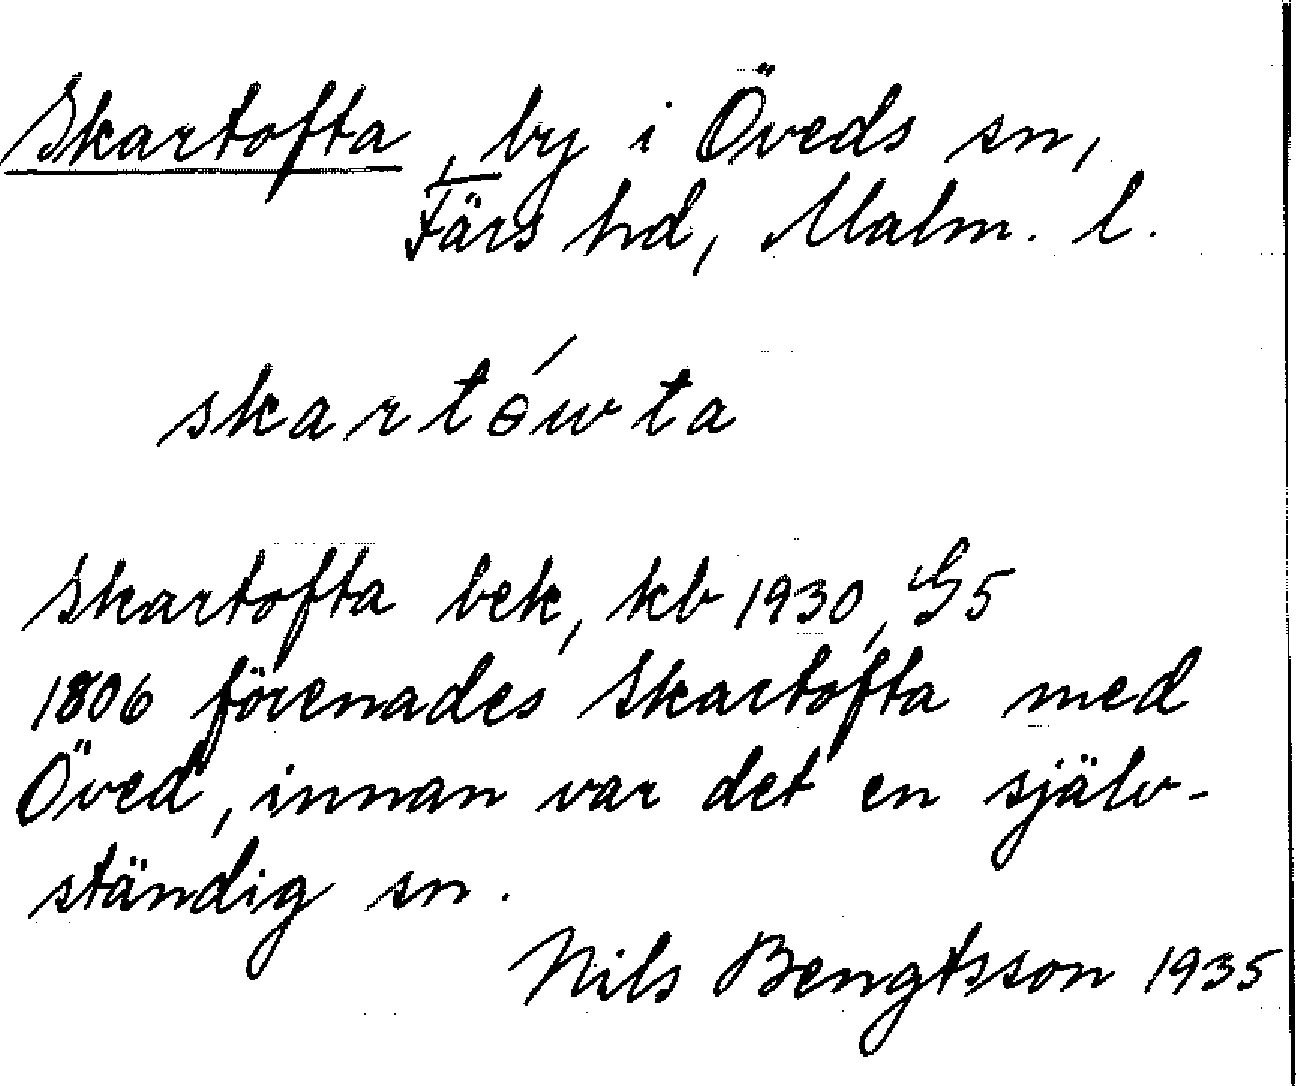 Skartofta, by i Öveds sn,
Färs hd, Malm. l.
skartɵ́wta
Skartofta bek, kb 1930, G5
1806 förenades Skartofta med
Öved, innan var det en själv-
ständig sn.
Nils Bengtsson 1935